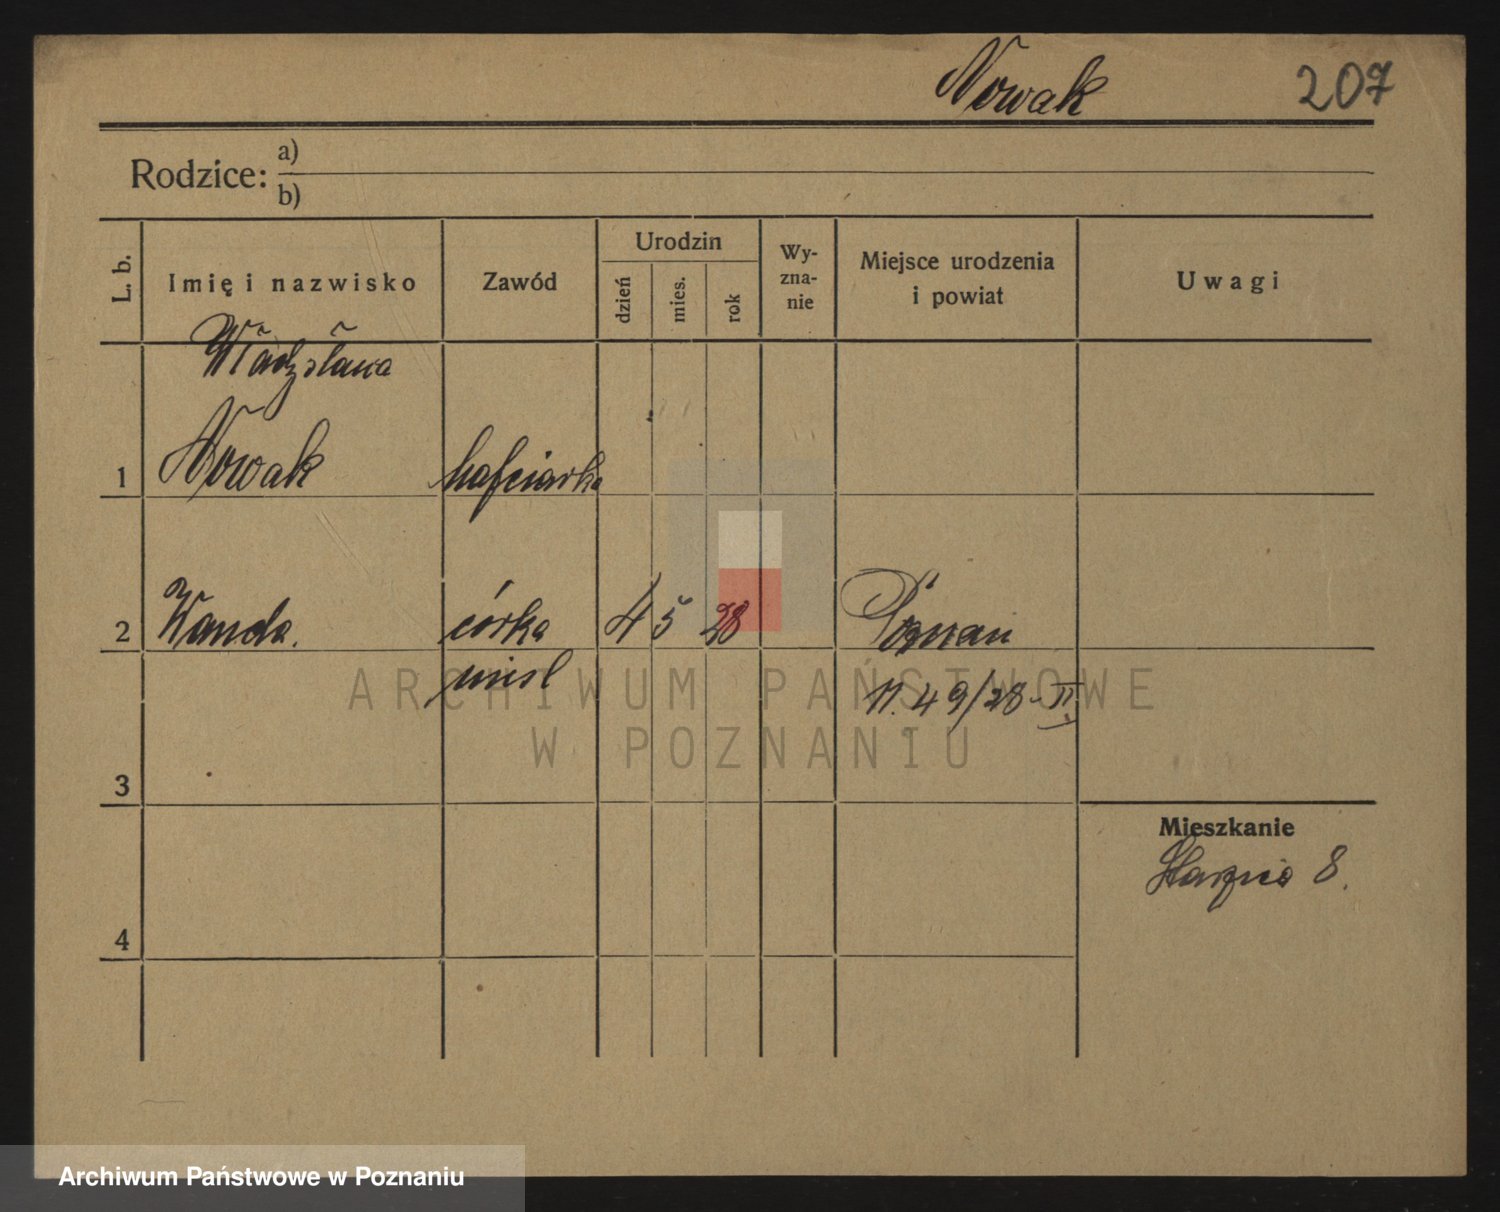 Nowak 207
Rodzice: a)
b)
L. b. Imię i nazwisko Zawód Urodzin dzień mies. rok Wy-zna-nie Miejsce urodzenia i powiat Uwagi
Władysława
1 Nowak hafciarka
2 Wanda. córka 4 5 28 Poznań
49/28-II
ARCHIWUM PAŃSTWOWE
W POZNANIU
3
Mieszkanie
8.
4
Archiwum Państwowe w Poznaniu